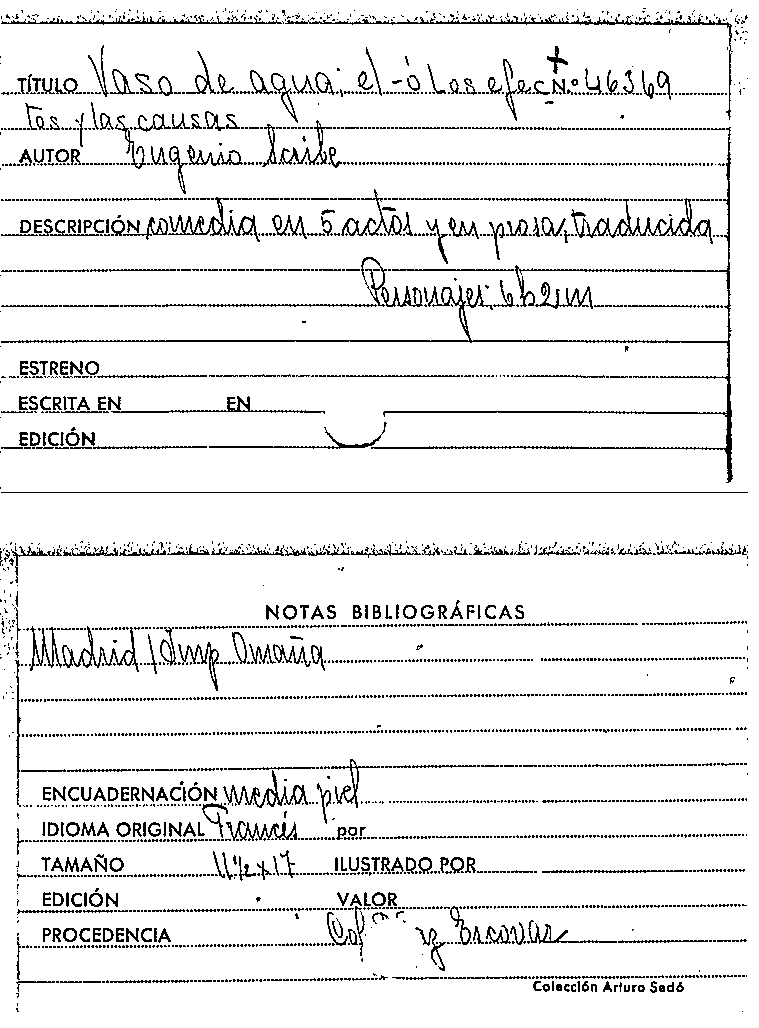 TÍTULO Vaso de agua; el - ó Los efec Nº 46369
tos y las causas
AUTOR Eugenio Scribe
DESCRIPCIÓN comedia en 5 actos y en prosa, traducida
Personajes: 6h2m
ESTRENO
ESCRITA EN EN
EDICIÓN
NOTAS BIBLIOGRÁFICAS
Madrid / Imp Omaña
ENCUADERNACIÓN media piel
IDIOMA ORIGINAL Francés por
TAMAÑO 11½ x 17 ILUSTRADO POR
EDICIÓN VALOR
PROCEDENCIA Col Escovar
Colección Arturo Sedó